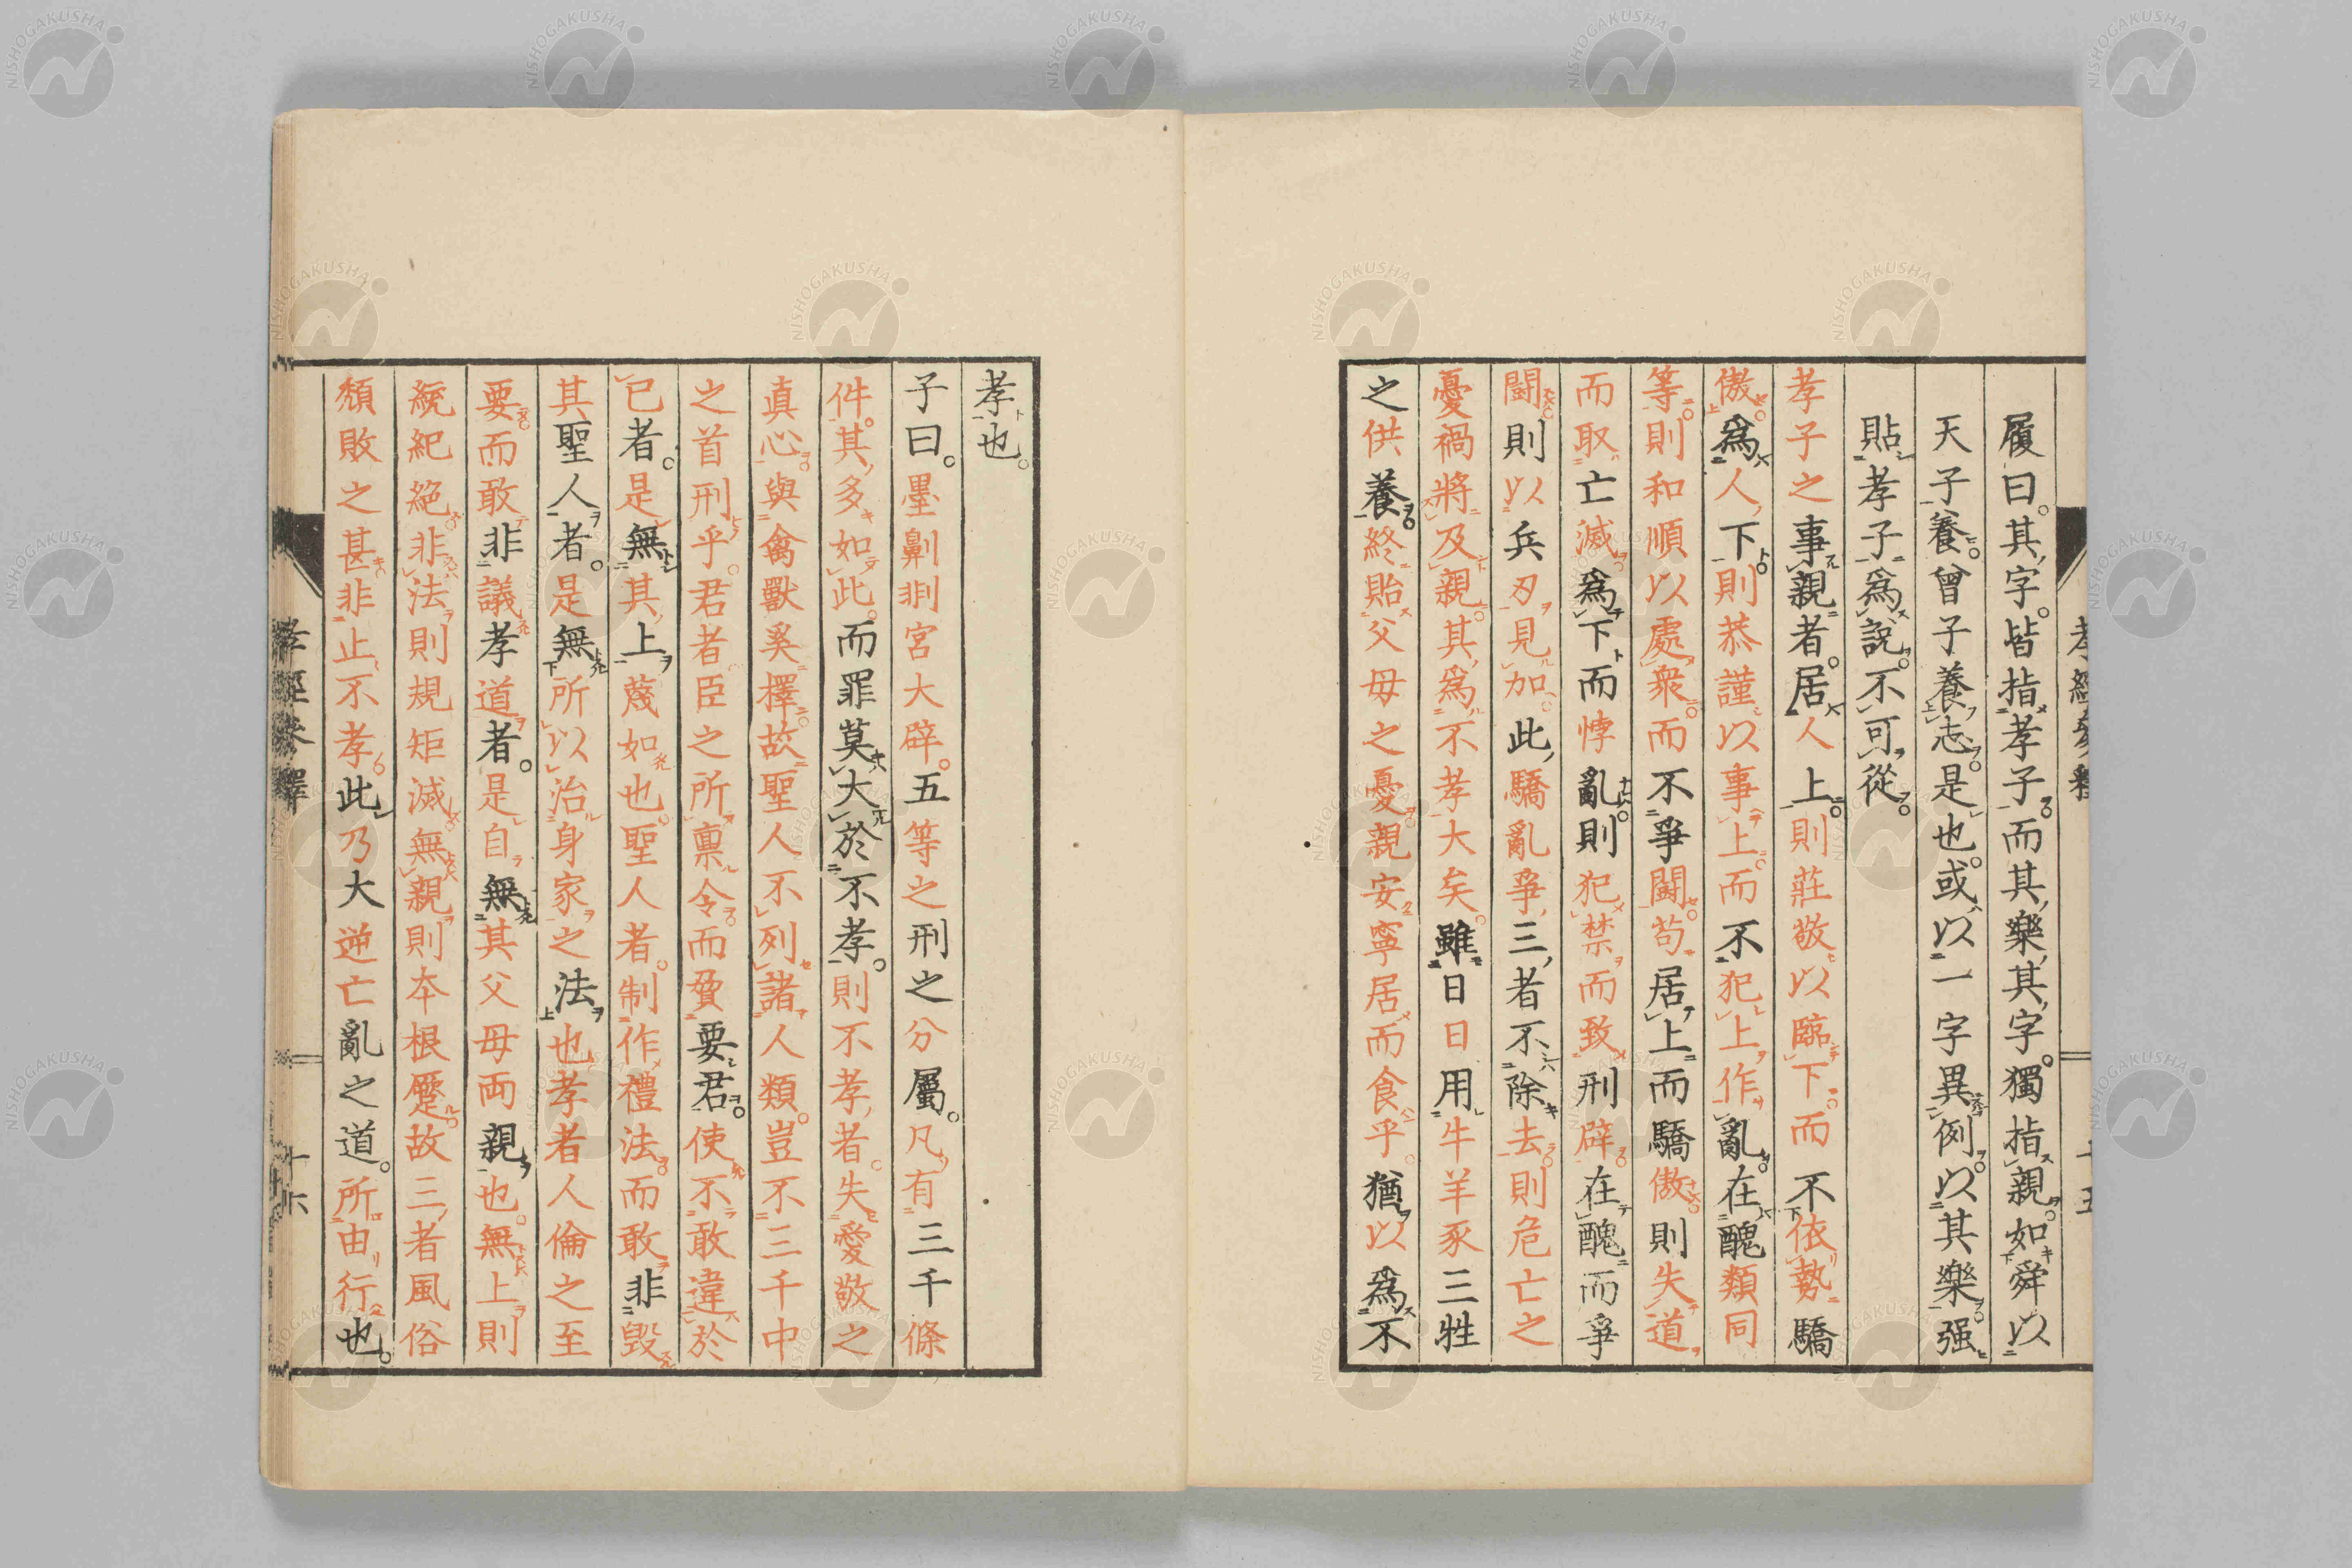 履曰其字皆指孝子而其樂其字獨指親如舜以
天子養曾子養志是也或以一字異例以其樂强
貼孝子爲說不可從
孝子之事親者居人上則莊敬以臨下而不依勢驕
傲爲人下則恭謹以事上而不犯上作亂在醜類同
等則和順以處衆而不爭鬪苟居上而驕傲則失道
而取亡滅爲下而悖亂則犯禁而致刑辟在醜而爭
鬪則以兵刃見加此驕亂爭三者不除去則危亡之
憂禍將及親其爲不孝大矣雖日日用牛羊豕三牲
之供養終貽父母之憂親安寧居而食乎猶以爲不
孝也
子曰墨劓剕宮大辟五等之刑之分屬凡有三千條
件其多如此而罪莫大於不孝則不孝者失愛敬之
真心與禽獸奚擇故聖人不列諸人類豈不三千中
之首刑乎君者臣之所禀令而𧵍要君使不敢違於
已者是無其上蔑如也聖人者制作禮法而敢非毀
其聖人者是無所以治身家之法也孝者人倫之至
要而敢非議孝道者是自無其父母両親也無上則
統紀絕非法則規矩滅無親則本根蹷故三者風俗
頽敗之甚非止不孝此乃大逆亡亂之道所由行也
孝經參釋
十六
NISHOGAKUSHA